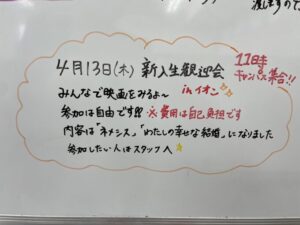 4月13日(木) 新入生歓迎会
11時キャンパス集合!!
みんなで映画をみるよ〜 in イオン
参加は自由です!! ※費用は自己負担です
内容は「ネメシス」「わたしの幸せな結婚」になりました
参加したい人はスタッフへ